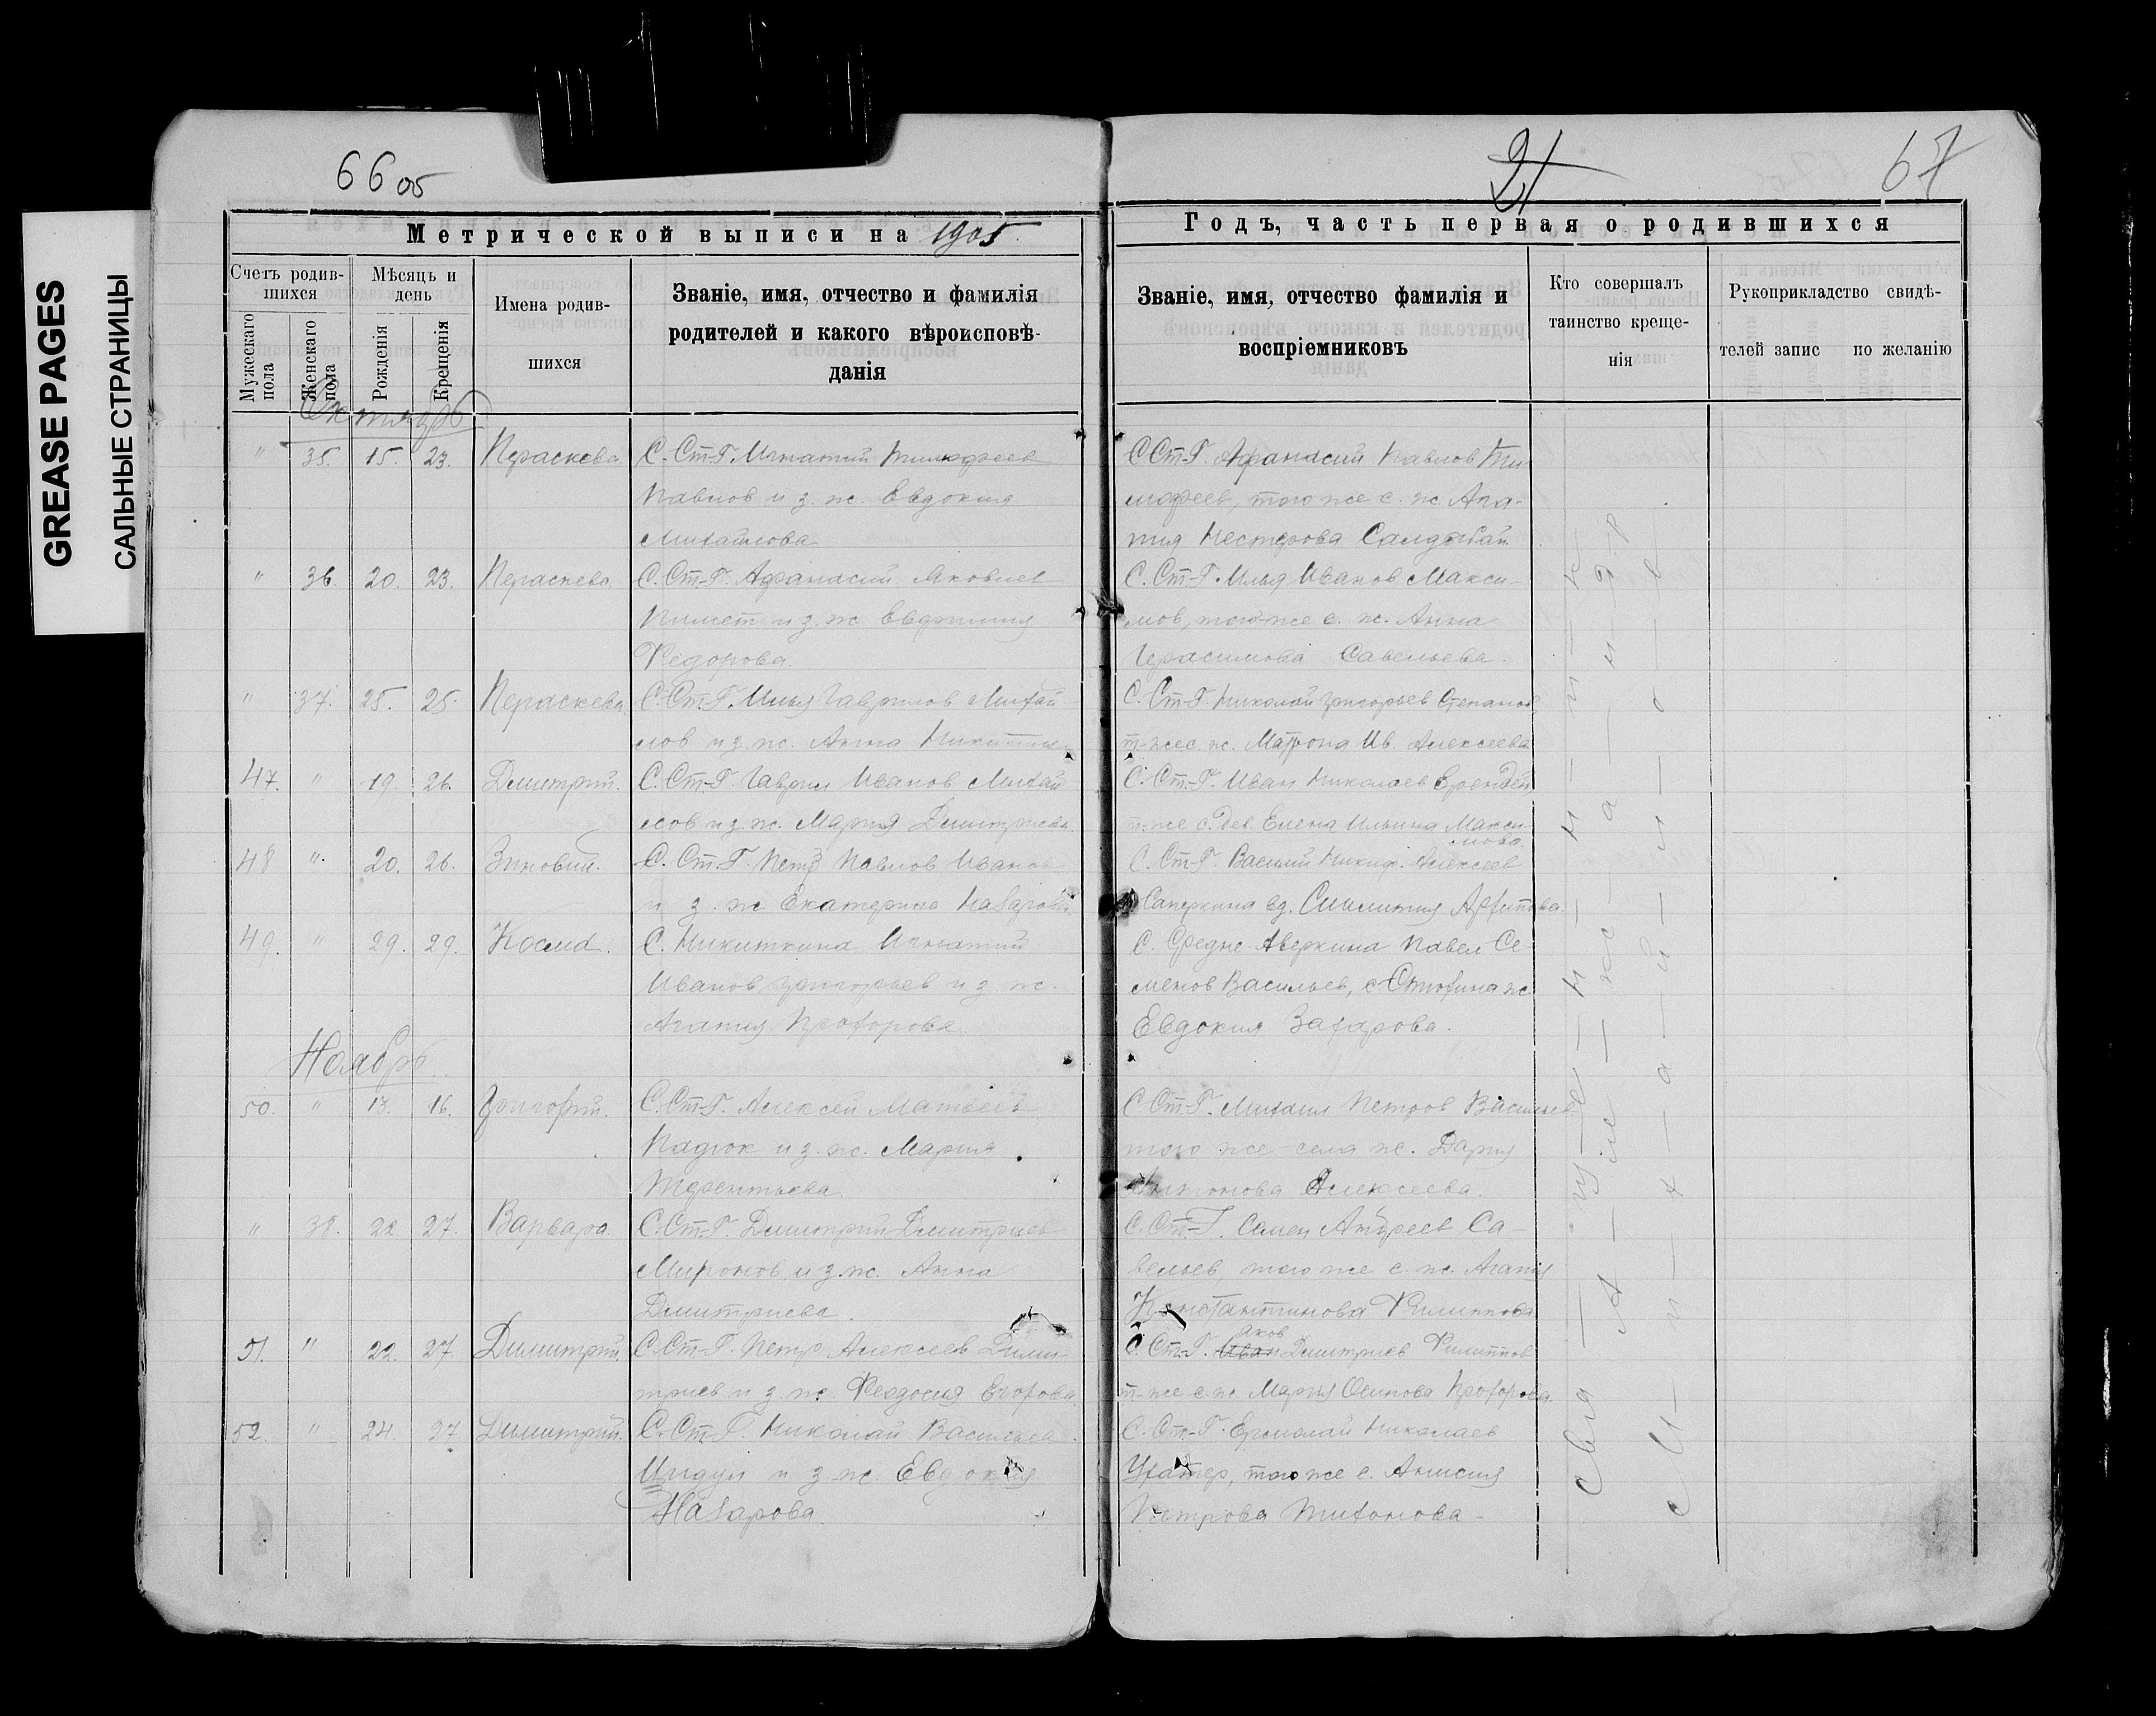 GREASE PAGES
САЛЬНЫЕ СТРАНИЦЫ
66 об
Метрической выписи на 1905
Счетъ родив-
шихся
Мѣсяць и
день
Мужескаго пола
Женскаго пола
Рожденія
Крещенія
Имена родив-
шихся
Званіе, имя, отчество и фамилія
родителей и какого вѣроисповѣ-
данія
Октябрь
" 35. 15. 23. Параскева С. Ст-Г. Игнатий Тимофеев
Павлов и з. ж. Евдокия
Михайлова
" 36. 20. 23. Параскева. С. Ст-Г. Афанасий Яковлев
и з. ж Евфимия
Федорова.
" 37. 25. 25. Параскева. С. Ст-Г. Илья Гаврилов Михай
лов и з. ж. Анна
47. " 19 26. Димитрий. С. Ст-Г. Гаврил Иванов Михай
лов и з. ж. Мария Димитриева
48 " 20. 26. Зиновий. С. Ст-Г. Петр Павлов Иванов
и з. ж Екатерина Назарова
49. " 29. 29. Косма. С. Никиткина Игнатий
Иванов Григорьев и з. ж.
Агапия Прохорова
Ноябрь
50. " 13. 16. Григорий. С. Ст-Г. Алексей Матвеев
и з. ж. Мария
Терентьева
" 38. 22 27. Варвара. С. Ст-Г. Димитрий Димитриев
Миронов и з. ж. Анна
Димитриева.
51. " 22. 27 Димитрий. С. Ст-Г. Петр Алексеев Дими-
триев и з. ж. Феодосия Егорова
52. " 24. 27 Димитрий. С. Ст-Г. Николай Васильев
и з. ж. Евдокия
Назарова.
21
67
Годъ, часть первая о родившихся
Званіе, имя, отчество фамилія и
воспріемниковъ
Кто совершалъ
таинство креще-
нія
Рукоприкладство свидѣ-
телей запис по желанію
С Ст-Г. Афанасий Павлов Ти-
мофеев, того же с. ж. Ага-
пия Нестерова
С. Ст-Г. Илья Иванов Макси-
мов, того-же с. ж. Анна
Герасимова Савельева.
С. Ст-Г. Николай Григорьев Степанов
т-же с. ж. Матрона Ив. Алексеева
С. Ст-Г. Иван Николаев
т-же с. дев. Елена Ильина Макси
мова.
С. Ст-Г. Василий Никиф. Алексеев
Саперкина вд.
С. Средне-Аверкина Павел Се-
менов Васильев, с. ж
Евдокия Захарова.
С Ст-Г. Михаил Петров Васильев
того же села ж. Дария
Антонова Алексеева.
С. Ст-Г. Семен Андреев Са-
вельев, того же с. ж. Агапия
Константинова Филиппова
С. Ст-Г. Иван Яков Димитриев Филиппов
т-же с. ж. Мария Осипова Прохорова.
С. Ст-Г. Ермолай Николаев
того же с. Анисия
Петрова Тихонова
Свя-щ-е-н-н-и-к
А-ле-кс-а-н-д-р
М-и-х-а-й-л-о-в